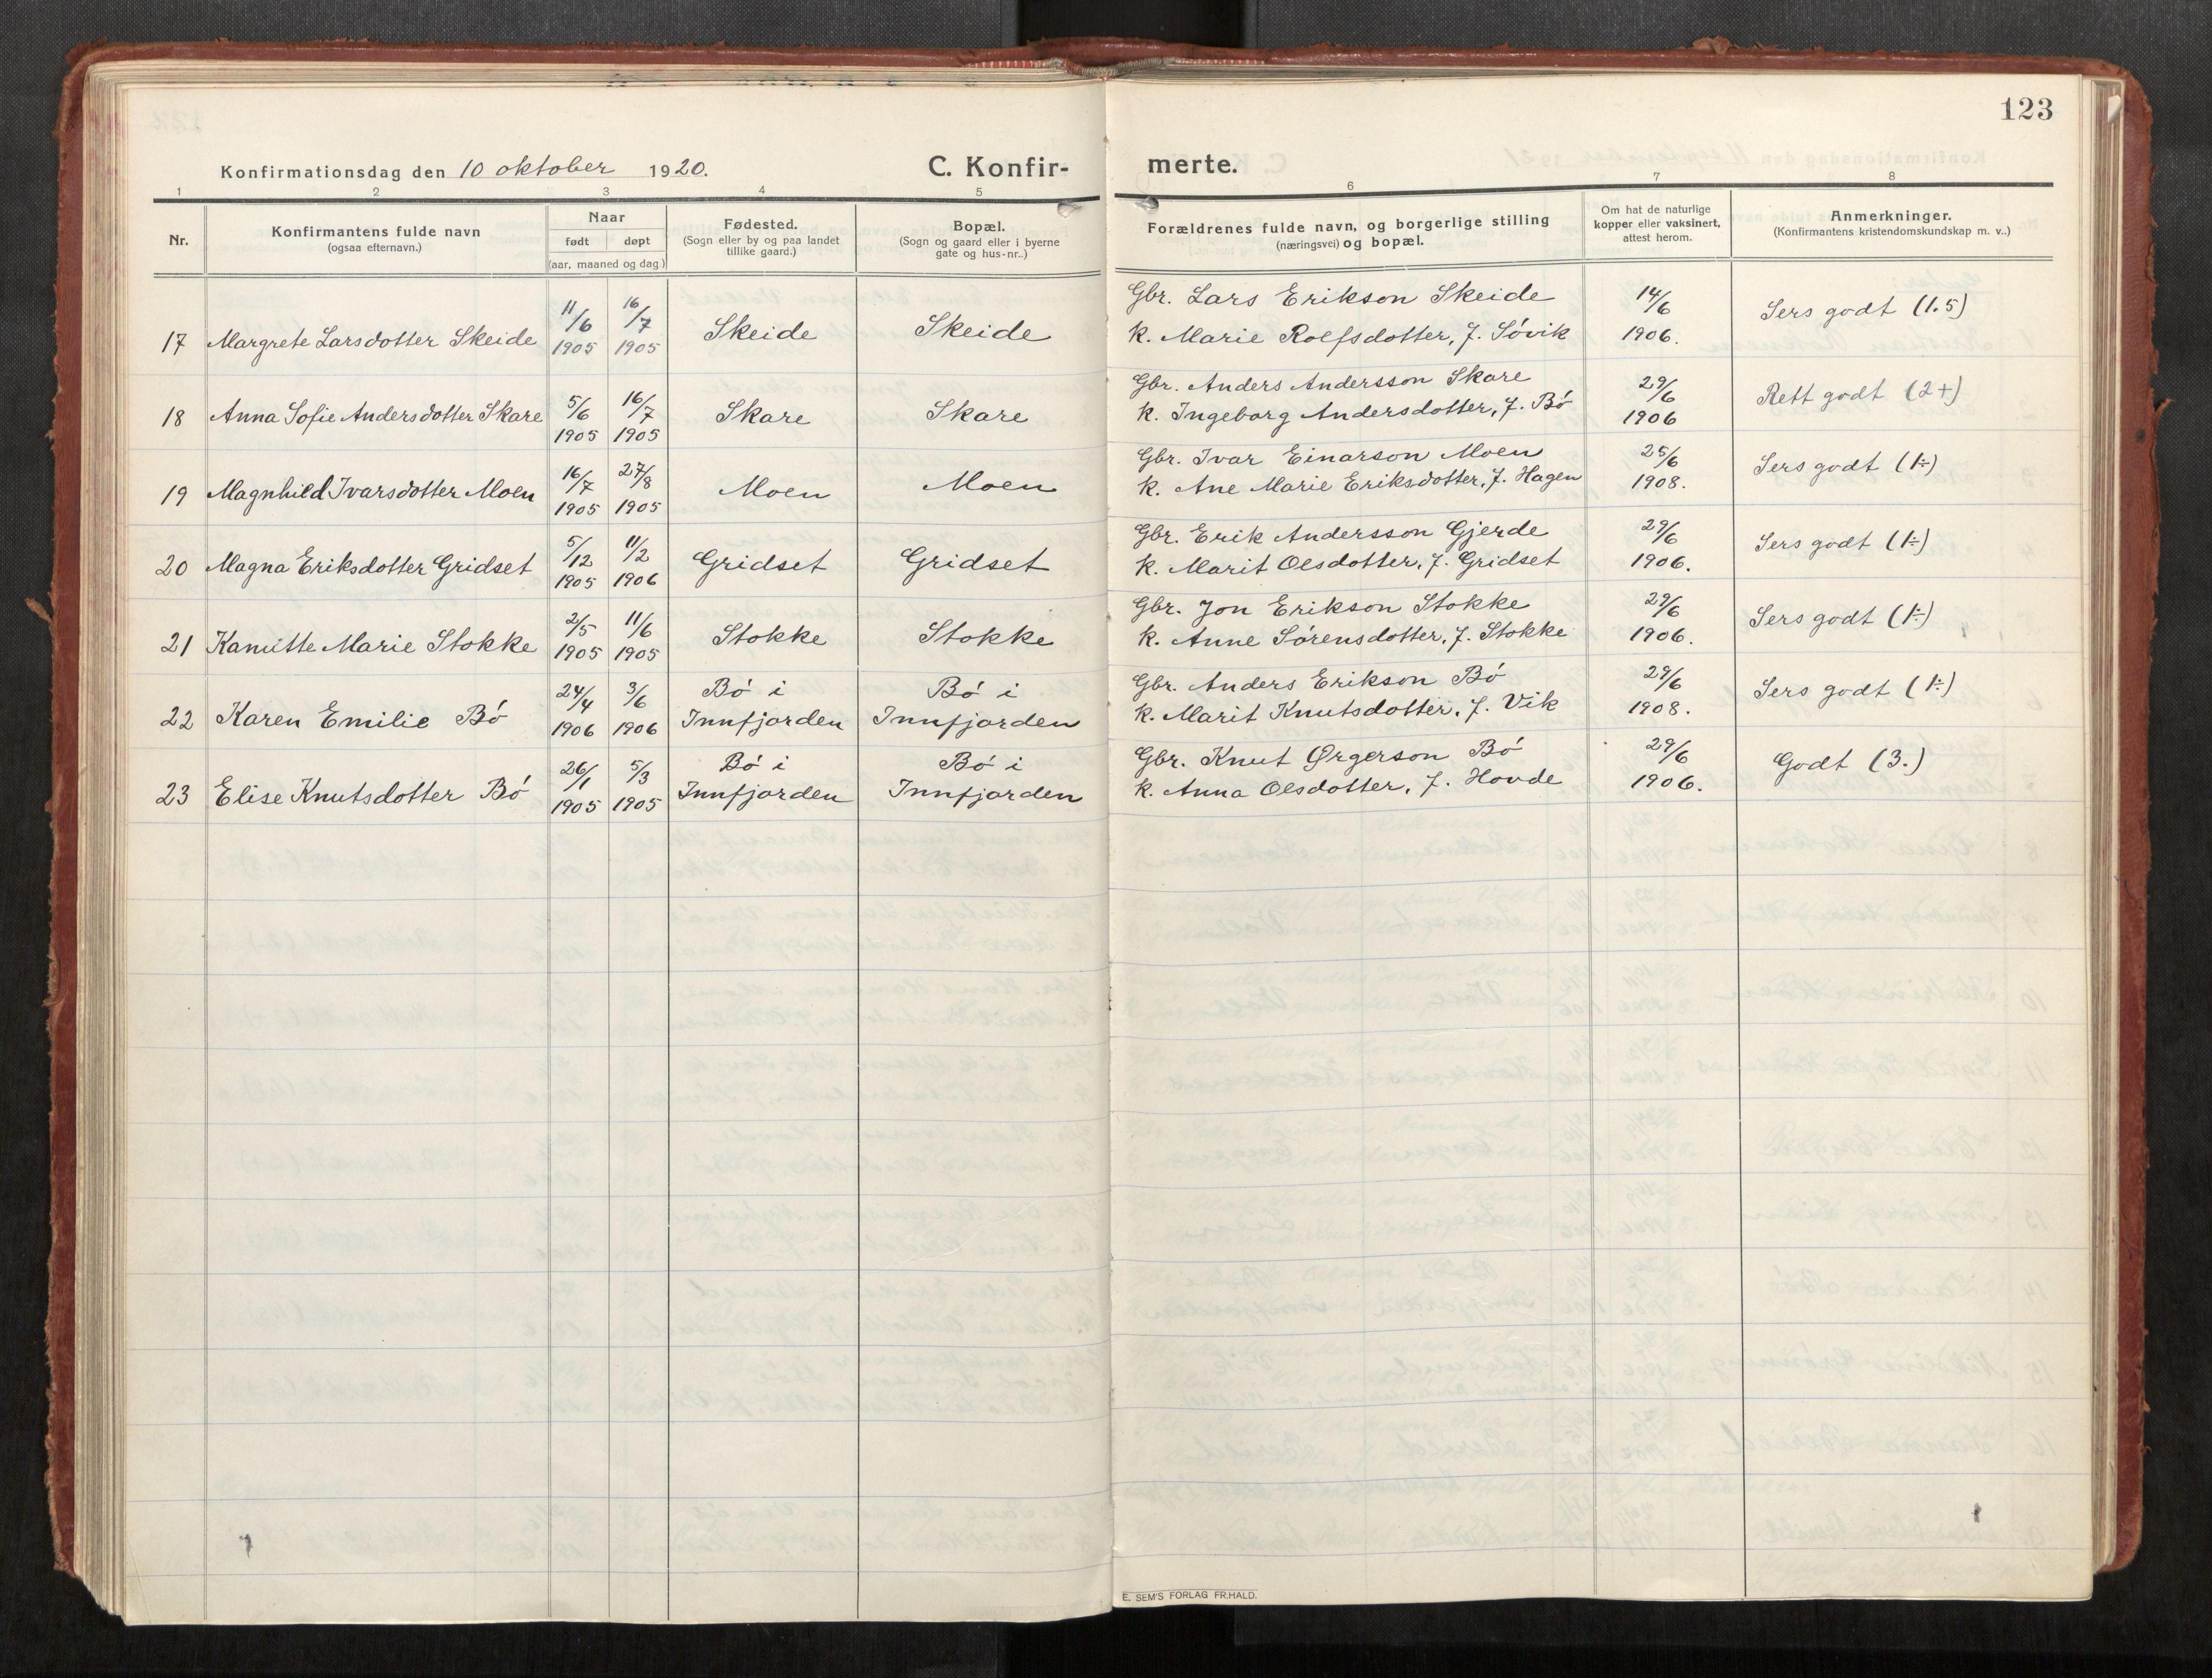 123
Konfirmationsdag den 10 oktober 1920.
C. Konfir-
merte.
1 2 3 4 5 6 7 8
Nr.
Konfirmantens fulde navn
(ogsaa efternavn.)
Naar
født døpt
(aar, maaned og dag.)
Fødested.
(Sogn eller by og paa landet
tillike gaard.)
Bopæl.
(Sogn og gaard eller i byerne
gate og hus-nr..)
Forældrenes fulde navn, og borgerlige stilling
(næringsvei) og bopæl.
Om hat de naturlige
kopper eller vaksinert,
attest herom.
Anmerkninger.
(Konfirmantens kristendomskundskap m. v..)
11/6 16/7 Gbr. Lars Erikson Skeide 14/6
17 Margrete Larsdotter Skeide 1905 1905 Skeide Skeide K. Marie Rolfsdotter, f. Søvik 1906. Sers godt (1.5)
5/6 16/7 Gbr. Anders Andersson Skare 29/6
18 Anna Sofie Andersdotter Skare 1905 1905 Skare Skare K. Ingeborg Andersdotter, f. Bø 1906 Rett godt (2+)
16/7 27/8 Gbr. Ivar Einarson Moen 25/6
19 Magnhild Ivarsdotter Moen 1905 1905 Moen Moen K. Ane Marie Eriksdotter, f. Hagen 1908. Sers godt (1÷)
5/12 11/2 Gbr. Erik Andersson Gjerde 29/6
20 Magna Eriksdotter Gridset 1905 1906 Gridset Gridset K. Marit Olsdotter, f. Gridset 1906. Sers godt (1÷)
2/5 11/6 Gbr. Jon Erikson Stokke 29/6
21 Kamitte Marie Stokke 1905 1905 Stokke Stokke K. Anne Sørensdotter, f. Stokke 1906. Sers godt (1÷)
24/4 3/6 Bø i Bø i Gbr. Anders Erikson Bø 29/6
22 Karen Emilie Bø 1906 1906 Innfjorden Innfjorden K. Marit Knutsdotter, f. Vik 1908. Sers godt (1÷)
26/1 5/3 Bø i Bø i Gbr. Knut Ørgerson Bø 29/6
23 Elise Knutsdotter Bø 1905 1905 Innfjorden Innfjorden K. Anna Olsdotter, f. Hovde 1906. Godt (3.)
E. SEM'S FORLAG FR.HALD.